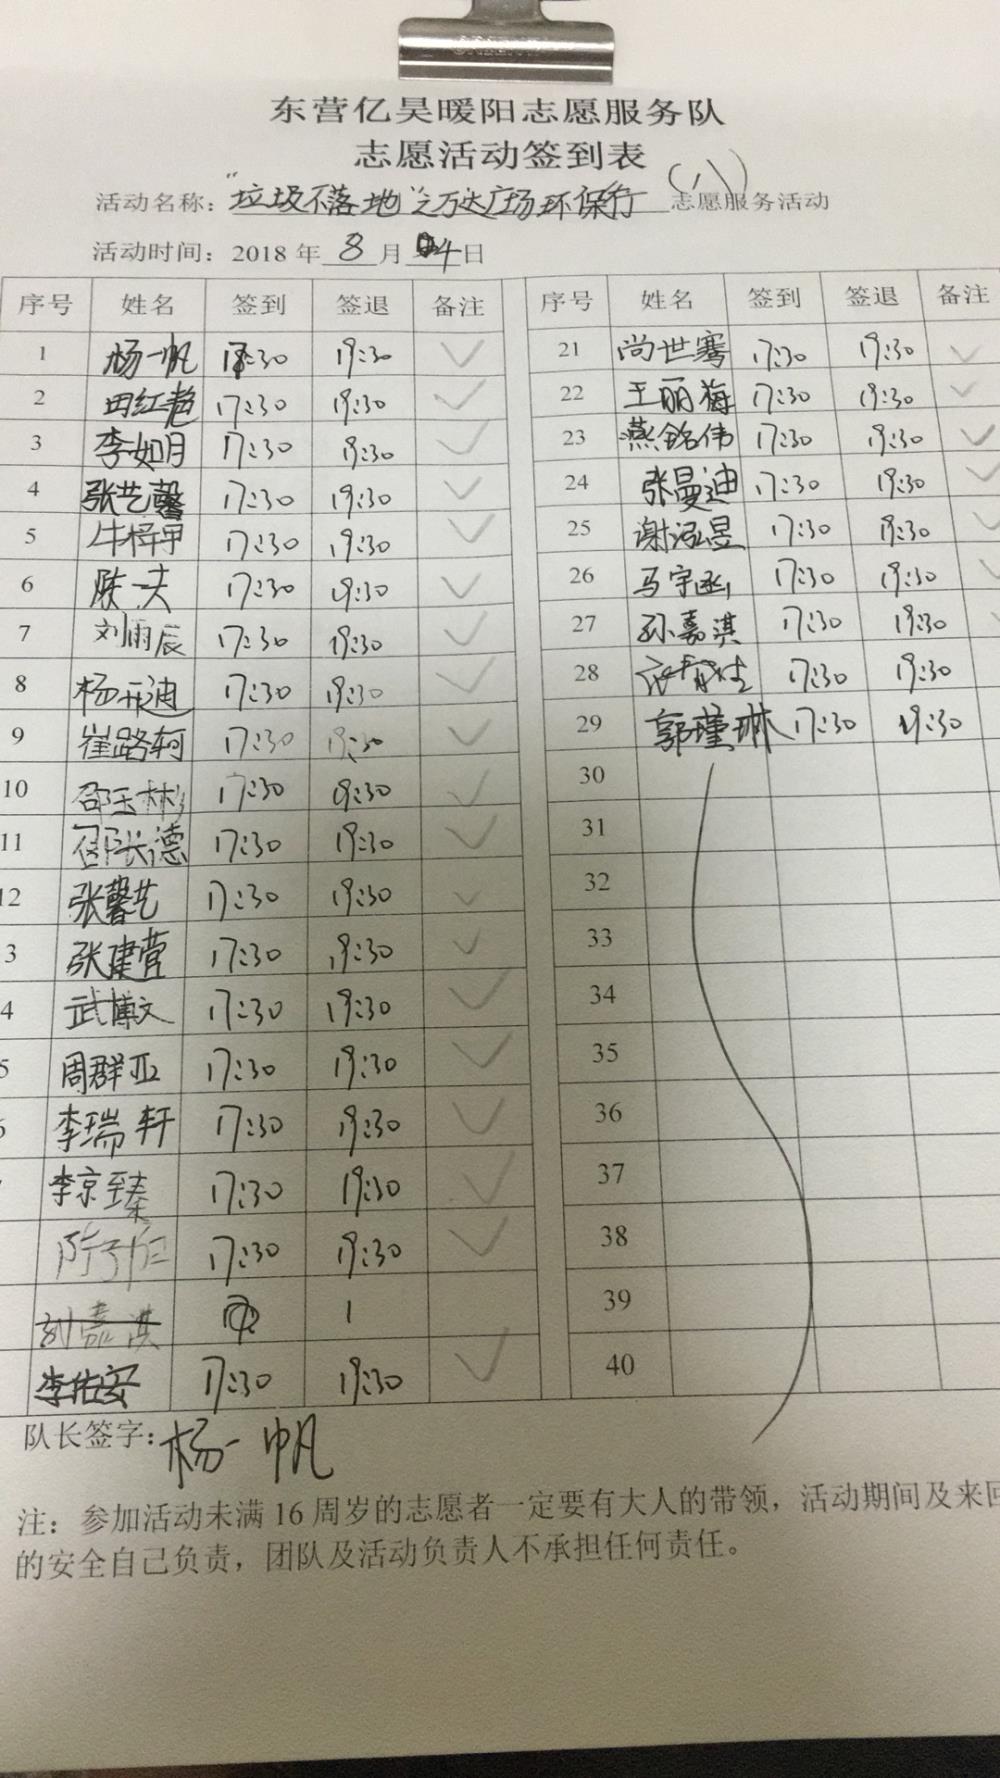 东营亿昊暖阳志愿服务队
志愿活动签到表
活动名称："垃圾不落地"之万达广场环保行 志愿服务活动 (1)
活动时间：2018年 8 月 04 日
序号 姓名 签到 签退 备注 序号 姓名 签到 签退 备注
1 杨一帆 17:30 19:30 ✓ 21 尚世骞 17:30 19:30 ✓
2 田红艳 17:30 19:30 ✓ 22 王丽梅 17:30 19:30 ✓
3 李如月 17:30 19:30 ✓ 23 燕铭伟 17:30 19:30 ✓
4 张艺馨 17:30 19:30 ✓ 24 张曼迪 17:30 19:30 ✓
5 17:30 19:30 ✓ 25 谢泓昱 17:30 19:30 ✓
6 陈一夫 17:30 19:30 ✓ 26 马宇函 17:30 19:30 ✓
7 刘雨辰 17:30 19:30 ✓ 27 孙嘉淇 17:30 19:30
8 17:30 19:30 ✓ 28 17:30 19:30
9 崔路轲 17:30 19:30 ✓ 29 郭瑾琳 17:30 19:30
10 邵玉彬 17:30 19:30 ✓ 30
11 邵长德 17:30 19:30 ✓ 31
12 张馨艺 17:30 19:30 ✓ 32
3 张建营 17:30 19:30 ✓ 33
4 武博文 17:30 19:30 ✓ 34
5 周群亚 17:30 19:30 ✓ 35
李瑞轩 17:30 19:30 ✓ 36
李京臻 17:30 19:30 ✓ 37
17:30 19:30 ✓ 38
刘嘉淇 1 39
李佑安 17:30 19:30 ✓ 40
队长签字：杨一帆
注：参加活动未满16周岁的志愿者一定要有大人的带领，活动期间及来回
的安全自己负责，团队及活动负责人不承担任何责任。